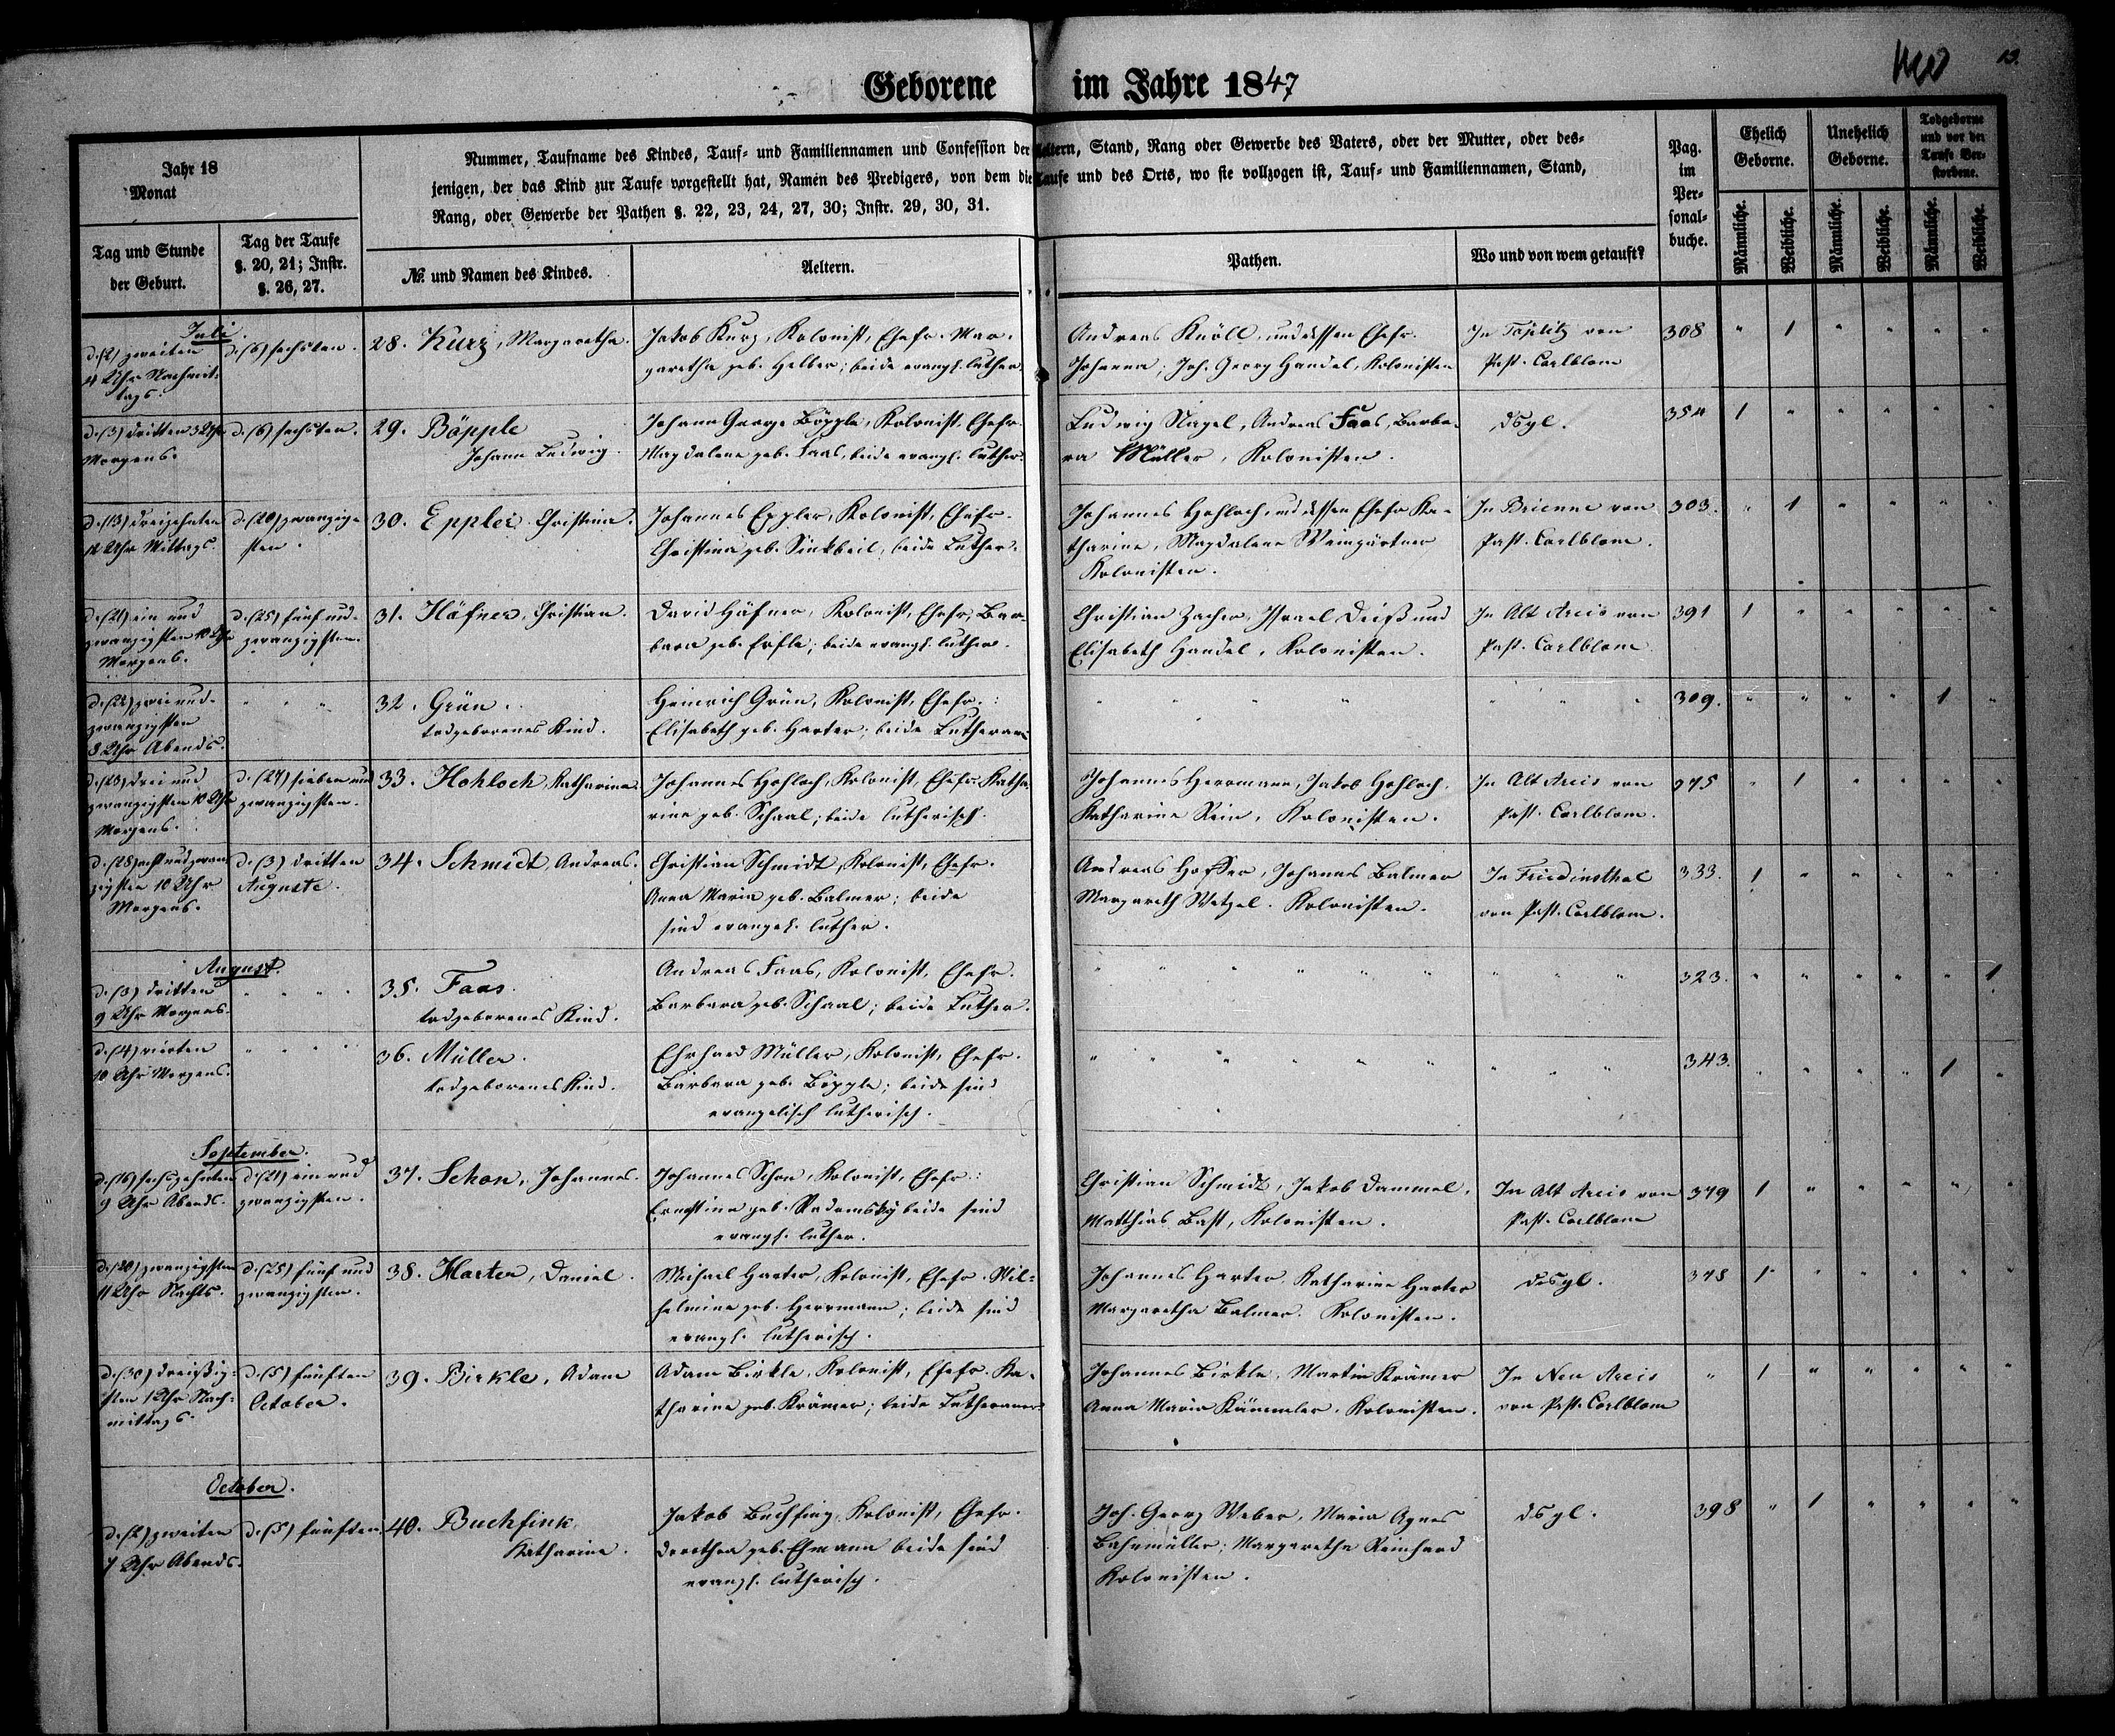 Geborene im Jahre 1847
13.
Jahr 18
Monat
Nummer, Taufname des Kindes, Tauf- und Familiennamen und Confession der Aeltern, Stand, Rang oder Gewerbe des Vaters, oder der Mutter, oder des-
jenigen, der das Kind zur Taufe vorgestellt hat, Namen des Predigers, von dem die Taufe und des Orts, wo sie vollzogen ist, Tauf- und Familiennamen, Stand,
Rang, oder Gewerbe der Pathen §. 22, 23, 24, 27, 30; Instr. 29, 30, 31.
Pag.
im
Per-
sonal-
buche.
Ehelich
Geborne.
Unehelich
Geborne.
Todgeborne
und vor der
Taufe Ver-
storbene.
Tag und Stunde
der Geburt.
Tag der Taufe
§. 20, 21; Instr.
§. 26, 27.
№ und Namen des Kindes.
Aeltern.
Pathen.
Wo und von wem getauft?
Männliche.
Weibliche.
Männliche.
Weibliche.
Männliche.
Weibliche.
Juli
d. (2) zweiten
4 Uhr Nachmit-
tags.
d. (6) sechsten.
28. Kurz, Margaretha.
Jakob Kurz, Kolonist, Ehefr. Mar-
garetha geb. Helber; beide evangl. luther.
Andreas Knöll, und dessen Ehefr.
Johanna; Joh. Georg Handel, Kolonisten
In Töplitz von
Past. Carlblom
308 " 1 " " " "
d. (3) dritten 3 Uhr
Morgens.
d. (6) sechsten.
29. Böpple
Johann Ludwig.
Johann George Böpple, Kolonist, Ehefr.
Magdalena geb. Faas, beide evangl. luther.
Ludwig Nagel, Andreas Faas, Barba-
ra Müller, Kolonisten.
dsgl.
354 1 " " " " "
d. (13) dreizehnten
12 Uhr Mittags.
d. (20) zwanzig-
sten.
30. Eppler Christina.
Johannes Eppler, Kolonist, Ehefr.
Christina geb. Sinkbeil, beide Luther.
Johannes Hohloch, und dessen Ehefr. Ka-
tharina, Magdalena Weingärtner
Kolonisten.
In Brienne von
Past. Carlblom.
303. " 1 " " " "
d. (21) ein und
zwanzigsten 10 Uhr
Morgens.
d. (25) fünf und
zwanzigsten.
31. Häfner, Christian.
David Häfner, Kolonist, Ehefr. Bar-
bara geb. Erfle; beide evangl. luther.
Christian Zacher, Israel Deiß und
Elisabeth Handel, Kolonisten.
In Alt Arcis von
Past. Carlblom
391 1 " " " " "
d. (22) zwei und
zwanzigsten
8 Uhr Abends.
" " "
32. Grün.
todgeborenes Kind.
Heinrich Grün, Kolonist, Ehefr.:
Elisabeth geb. Harter; beide Lutheran.
309. " " " " 1 "
d. (23) drei und
zwanzigsten 10 Uhr
Morgens.
d. (27) sieben und
zwanzigsten.
33. Hohloch, Katharina
Johannes Hohloch, Kolonist, Ehefr. Katha-
rina geb. Schaal; beide lutherisch.
Johannes Herrmann, Jakob Hohloch,
Katharina Rein, Kolonisten.
In Alt Arcis von
Past. Carlblom.
375 " 1 " " " "
d. (28) acht und zwan-
zigsten 10 Uhr
Morgens.
d. (3) dritten
Auguste.
34. Schmidt, Andreas.
Christian Schmidt, Kolonist, Ehefr.
Anna Maria geb. Balmer; beide
sind evangel. luther.
Andreas Hoffer, Johannes Balmer
Margareth Wetzel. Kolonisten.
In Friedensthal
von Past. Carlblom.
333. 1 " " " " "
August.
d. (3) dritten
9 Uhr Morgens.
" " " "
35. Faas.
todgeborenes Kind.
Andreas Faas, Kolonist, Ehefr.
Barbara geb. Schaal; beide Luther.
323. " " " " " 1
d. (4) vierten
10 Uhr Morgens.
" " " "
36. Müller.
todgeborenes Kind.
Ehrhard Müller, Kolonist, Ehefr.
Barbara geb. Böpple; beide sind
evangelisch lutherisch.
343. " " " " 1 "
September.
d. (16) sechszehnten
9 Uhr Abends.
d. (21) ein und
zwanzigsten.
37. Schon, Johannes.
Johannes Schon, Kolonist, Ehefr.:
Ernestina geb. Radomsky beide sind
evangl. luther.
Christian Schmidt, Jakob Dammel,
Matthias Bast, Kolonisten.
In Alt Arcis von
Past. Carlblom
379 1 " " " " "
d. (20) zwanzigsten
11 Uhr Nachts.
d. (25) fünf und
zwanzigsten.
38. Harter, Daniel.
Michael Harter, Kolonist, Ehefr. Wil-
helmine geb. Herrmann; beide sind
evangl. lutherisch.
Johannes Harter, Katharina Harter
Margaretha Balmer. Kolonisten.
dsgl.
378 1 " " " " "
d. (30) dreißig-
sten 1 Uhr Nach-
mittags.
d. (5) fünften
October.
39. Birkle, Adam
Adam Birkle, Kolonist, Ehefr. Ka-
tharina geb. Krämer; beide Lutheraner.
Johannes Birkle, Martin Krämer
Anna Maria Kümmler. Kolonisten.
In Neu Arcis
von Past. Carlblom
" 1 " " " " "
October.
d. (2) zweiten
7 Uhr Abends.
d. (5) fünften
40. Buchfink
Katharina.
Jakob Buchfing, Kolonist, Ehefr.
Dorothea geb. Ehmann beide sind
evangl. lutherisch.
Joh. Georg Weber, Maria Agnes
Bahnmüller; Margaretha Reinhard
Kolonisten.
dsgl.
398 " 1 " " " "